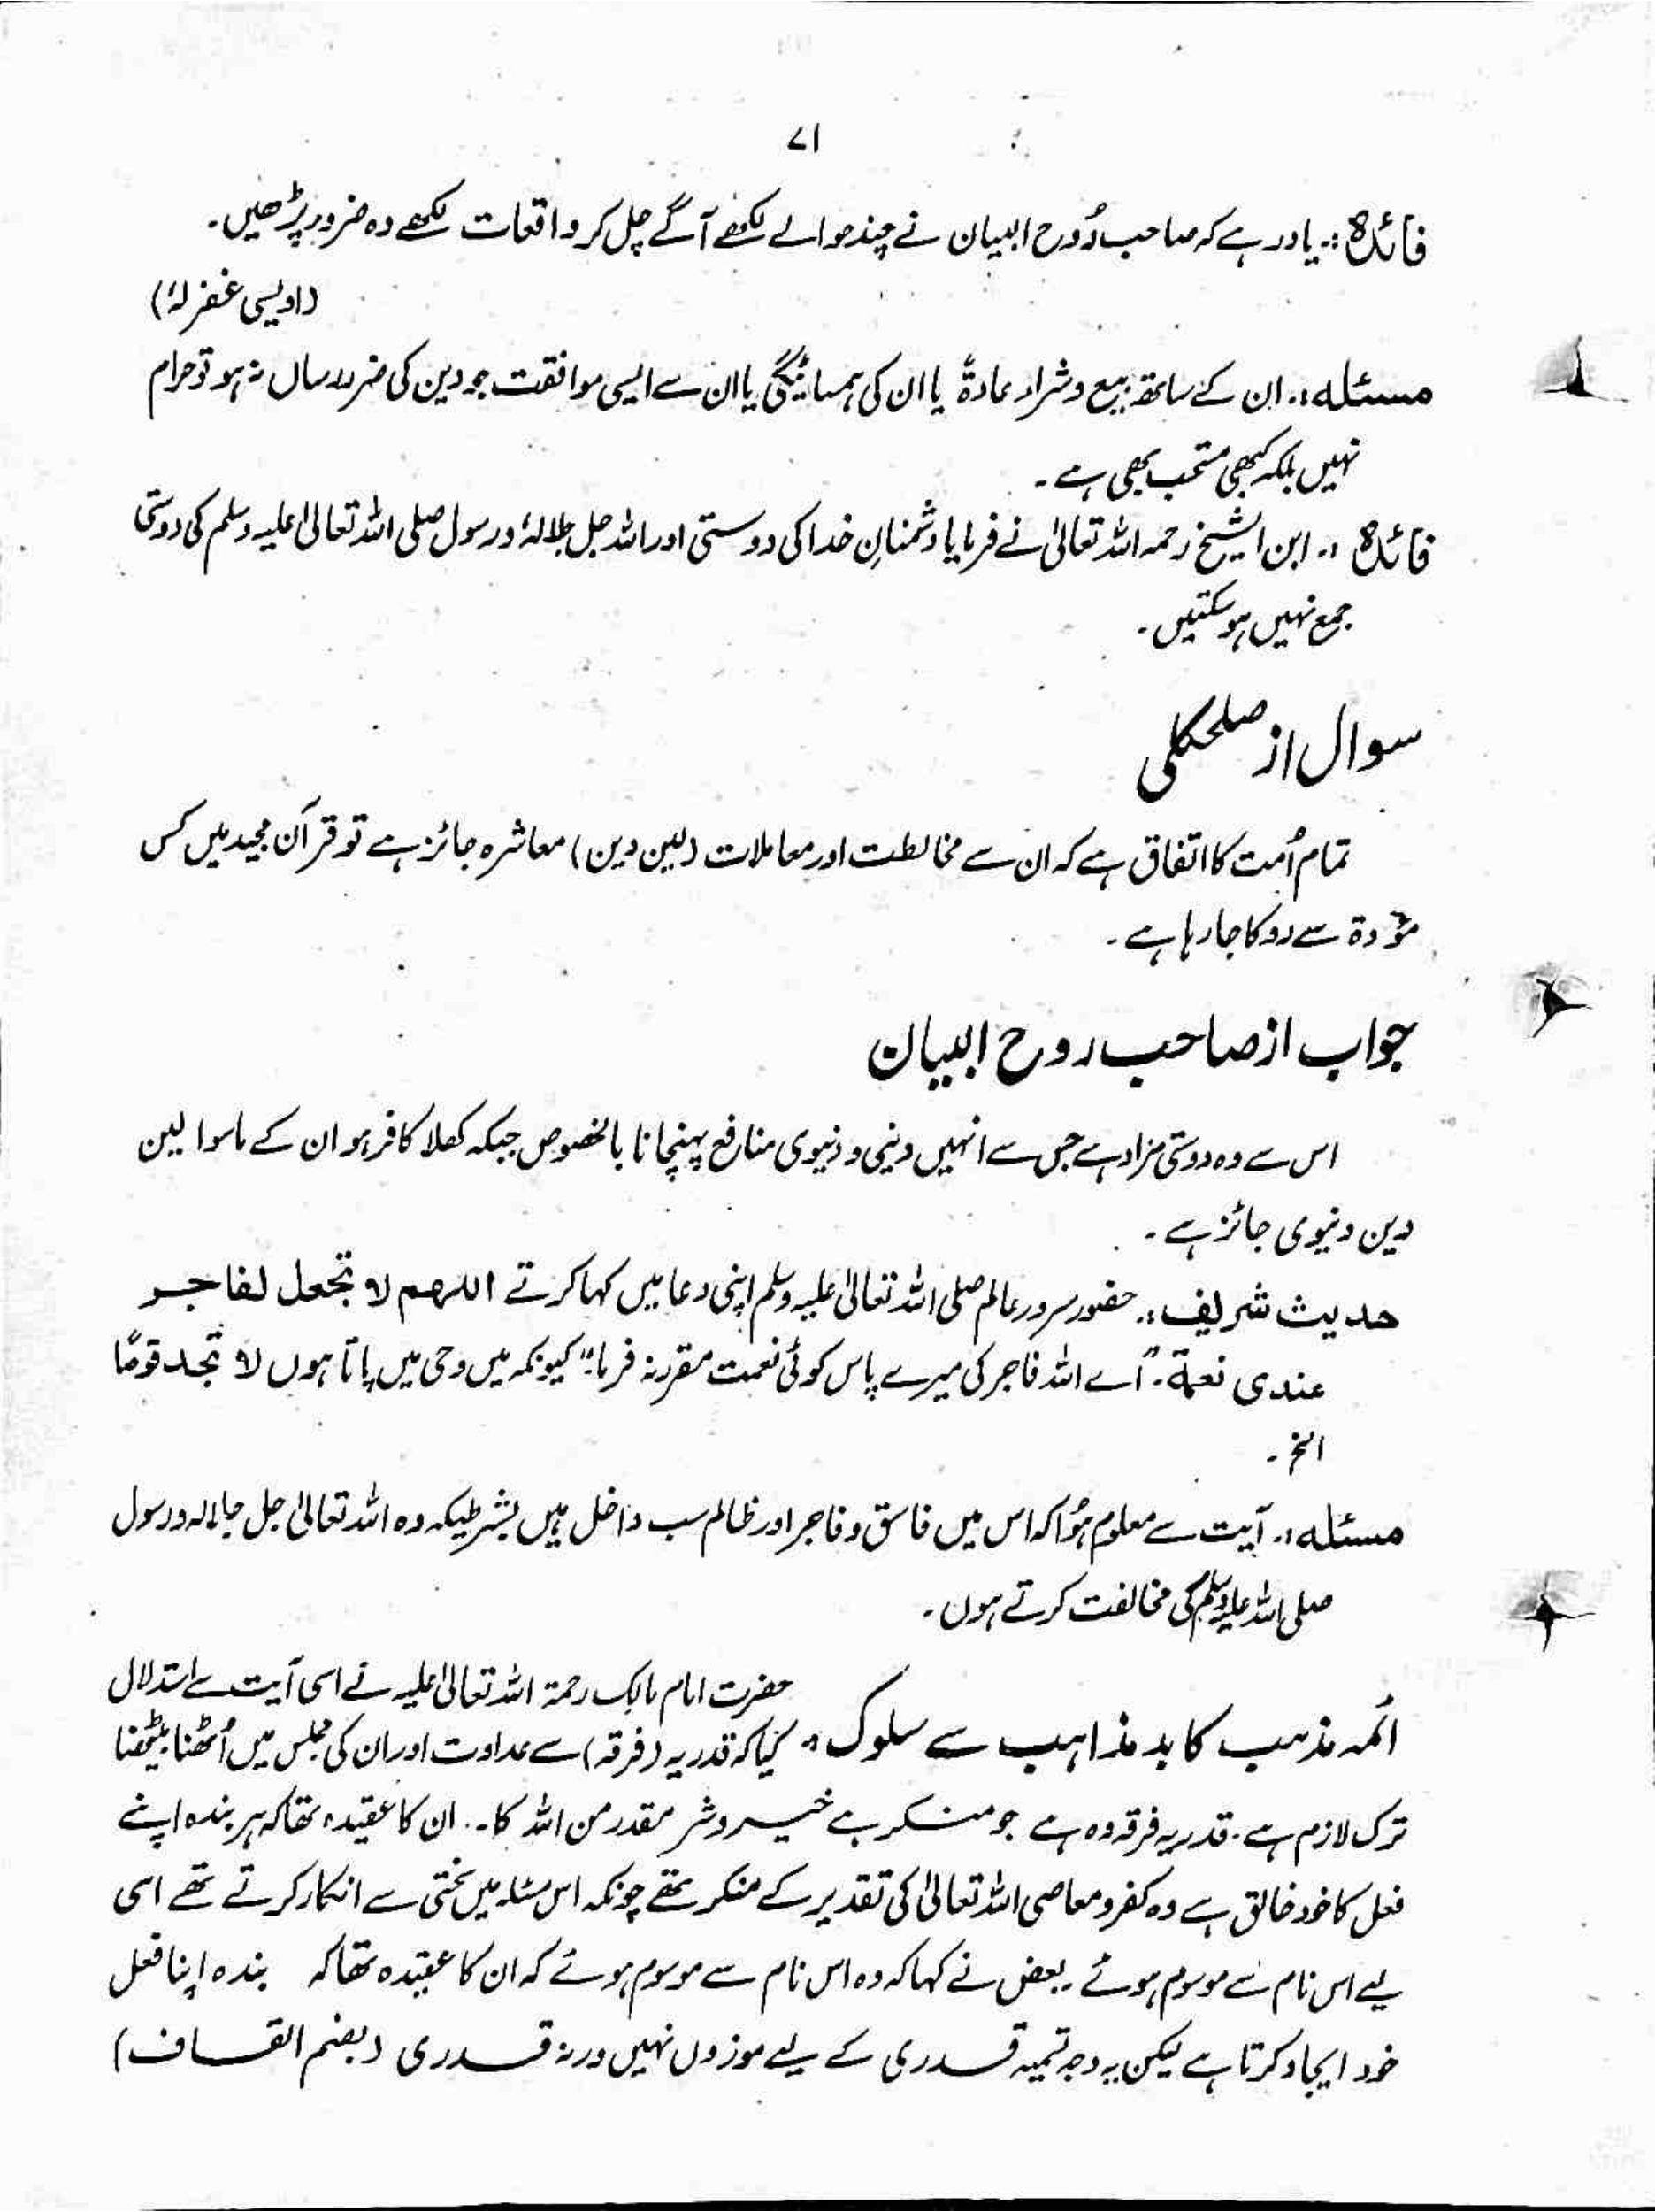 ۷۱
فائدہ :۔ یاد رہے کہ صاحب رُوح البیان نے چند حوالے لکھے آگے چل کر واقعات لکھے وہ ضرور پڑھیں۔
(اویسی غفرلہٗ)
مسئلہ :۔ ان کے ساتھ بیع و شراء عادۃً یا ان کی ہمسائیگی یا ان سے ایسی موافقت جو دین کی ضرر رساں نہ ہو تو حرام
نہیں بلکہ کبھی مستحب بھی ہے ۔
فائدہ :۔ ابن الشیخ رحمہ اللہ تعالیٰ نے فرمایا دشمنانِ خدا کی دوستی اور اللہ جل جلالہٗ و رسول صلی اللہ تعالیٰ علیہ وسلم کی دوستی
جمع نہیں ہو سکتیں ۔
سوال از صلحکلی
تمام اُمت کا اتفاق ہے کہ ان سے مخالطت اور معاملات (لین دین) معاشرہ جائز ہے تو قرآن مجید میں کس
مؤدۃ سے روکا جا رہا ہے ۔
جواب از صاحب روح البیان
اس سے وہ دوستی مراد ہے جس سے انہیں دینی و دنیوی منافع پہنچانا بالخصوص جبکہ کھلا کافر ہو ان کے ماسوا لین
دین دنیوی جائز ہے ۔
حدیث شریف :۔ حضور سرور عالم صلی اللہ تعالیٰ علیہ وسلم اپنی دعا میں کہا کرتے اللھم لا تجعل لفاجر
عندی نعمۃ۔ "اے اللہ فاجر کی میرے پاس کوئی نعمت مقرر نہ فرما۔" کیونکہ میں وحی میں پاتا ہوں لا تجد قومًا
الخ ۔
مسئلہ :۔ آیت سے معلوم ہُوا کہ اس میں فاسق و فاجر اور ظالم سب داخل ہیں بشرطیکہ وہ اللہ تعالیٰ جل جلالہ و رسول
صلی اللہ علیہ وسلم کی مخالفت کرتے ہوں ۔
ائمہ مذہب کا بد مذاہب سے سلوک :۔ حضرت امام مالک رحمۃ اللہ تعالیٰ علیہ نے اسی آیت سے استدلال
کیا کہ قدریہ (فرقہ) سے عداوت اور ان کی مجلس میں اُٹھنا بیٹھنا
ترک لازم ہے ۔ قدریہ فرقہ وہ ہے جو منکر ہے خیر و شر مقدر من اللہ کا ۔۔ ان کا عقیدہ تھا کہ ہر بندہ اپنے
فعل کا خود خالق ہے وہ کفر و معاصی اللہ تعالیٰ کی تقدیر کے منکر تھے چونکہ اس مسئلہ میں سختی سے انکار کرتے تھے اسی
لیے اس نام سے موسوم ہوئے ۔ بعض نے کہا کہ وہ اس نام سے موسوم ہوئے کہ ان کا عقیدہ تھا کہ بندہ اپنا فعل
خود ایجاد کرتا ہے لیکن یہ وجہ تسمیہ قدری کے لیے موزوں نہیں ورنہ قدری (بضم القاف)